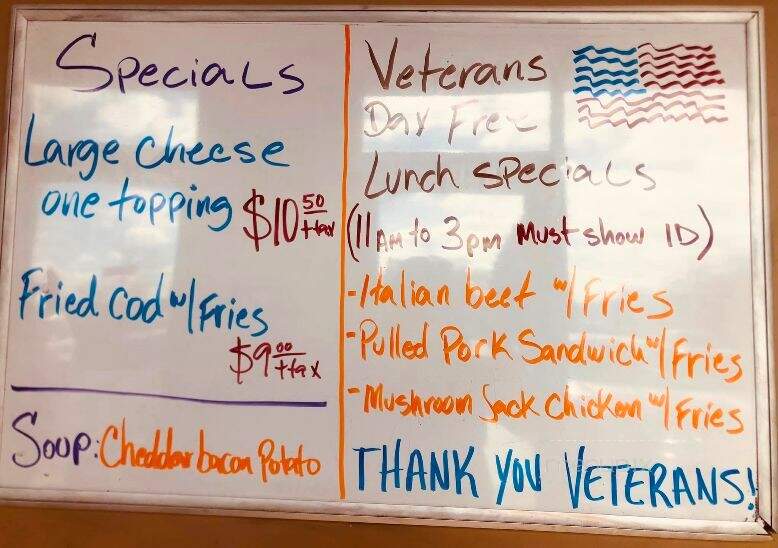 Specials
Large cheese
one topping $10.50 +tax
Fried Cod w/ Fries
$9.00 +tax
Soup: Cheddar bacon Potato
Veterans
Day Free
Lunch specials
(11AM to 3pm Must show ID)
-Italian beef w/ Fries
-Pulled Pork Sandwich w/ Fries
-Mushroom Jack Chicken w/ Fries
THANK YOU VETERANS!